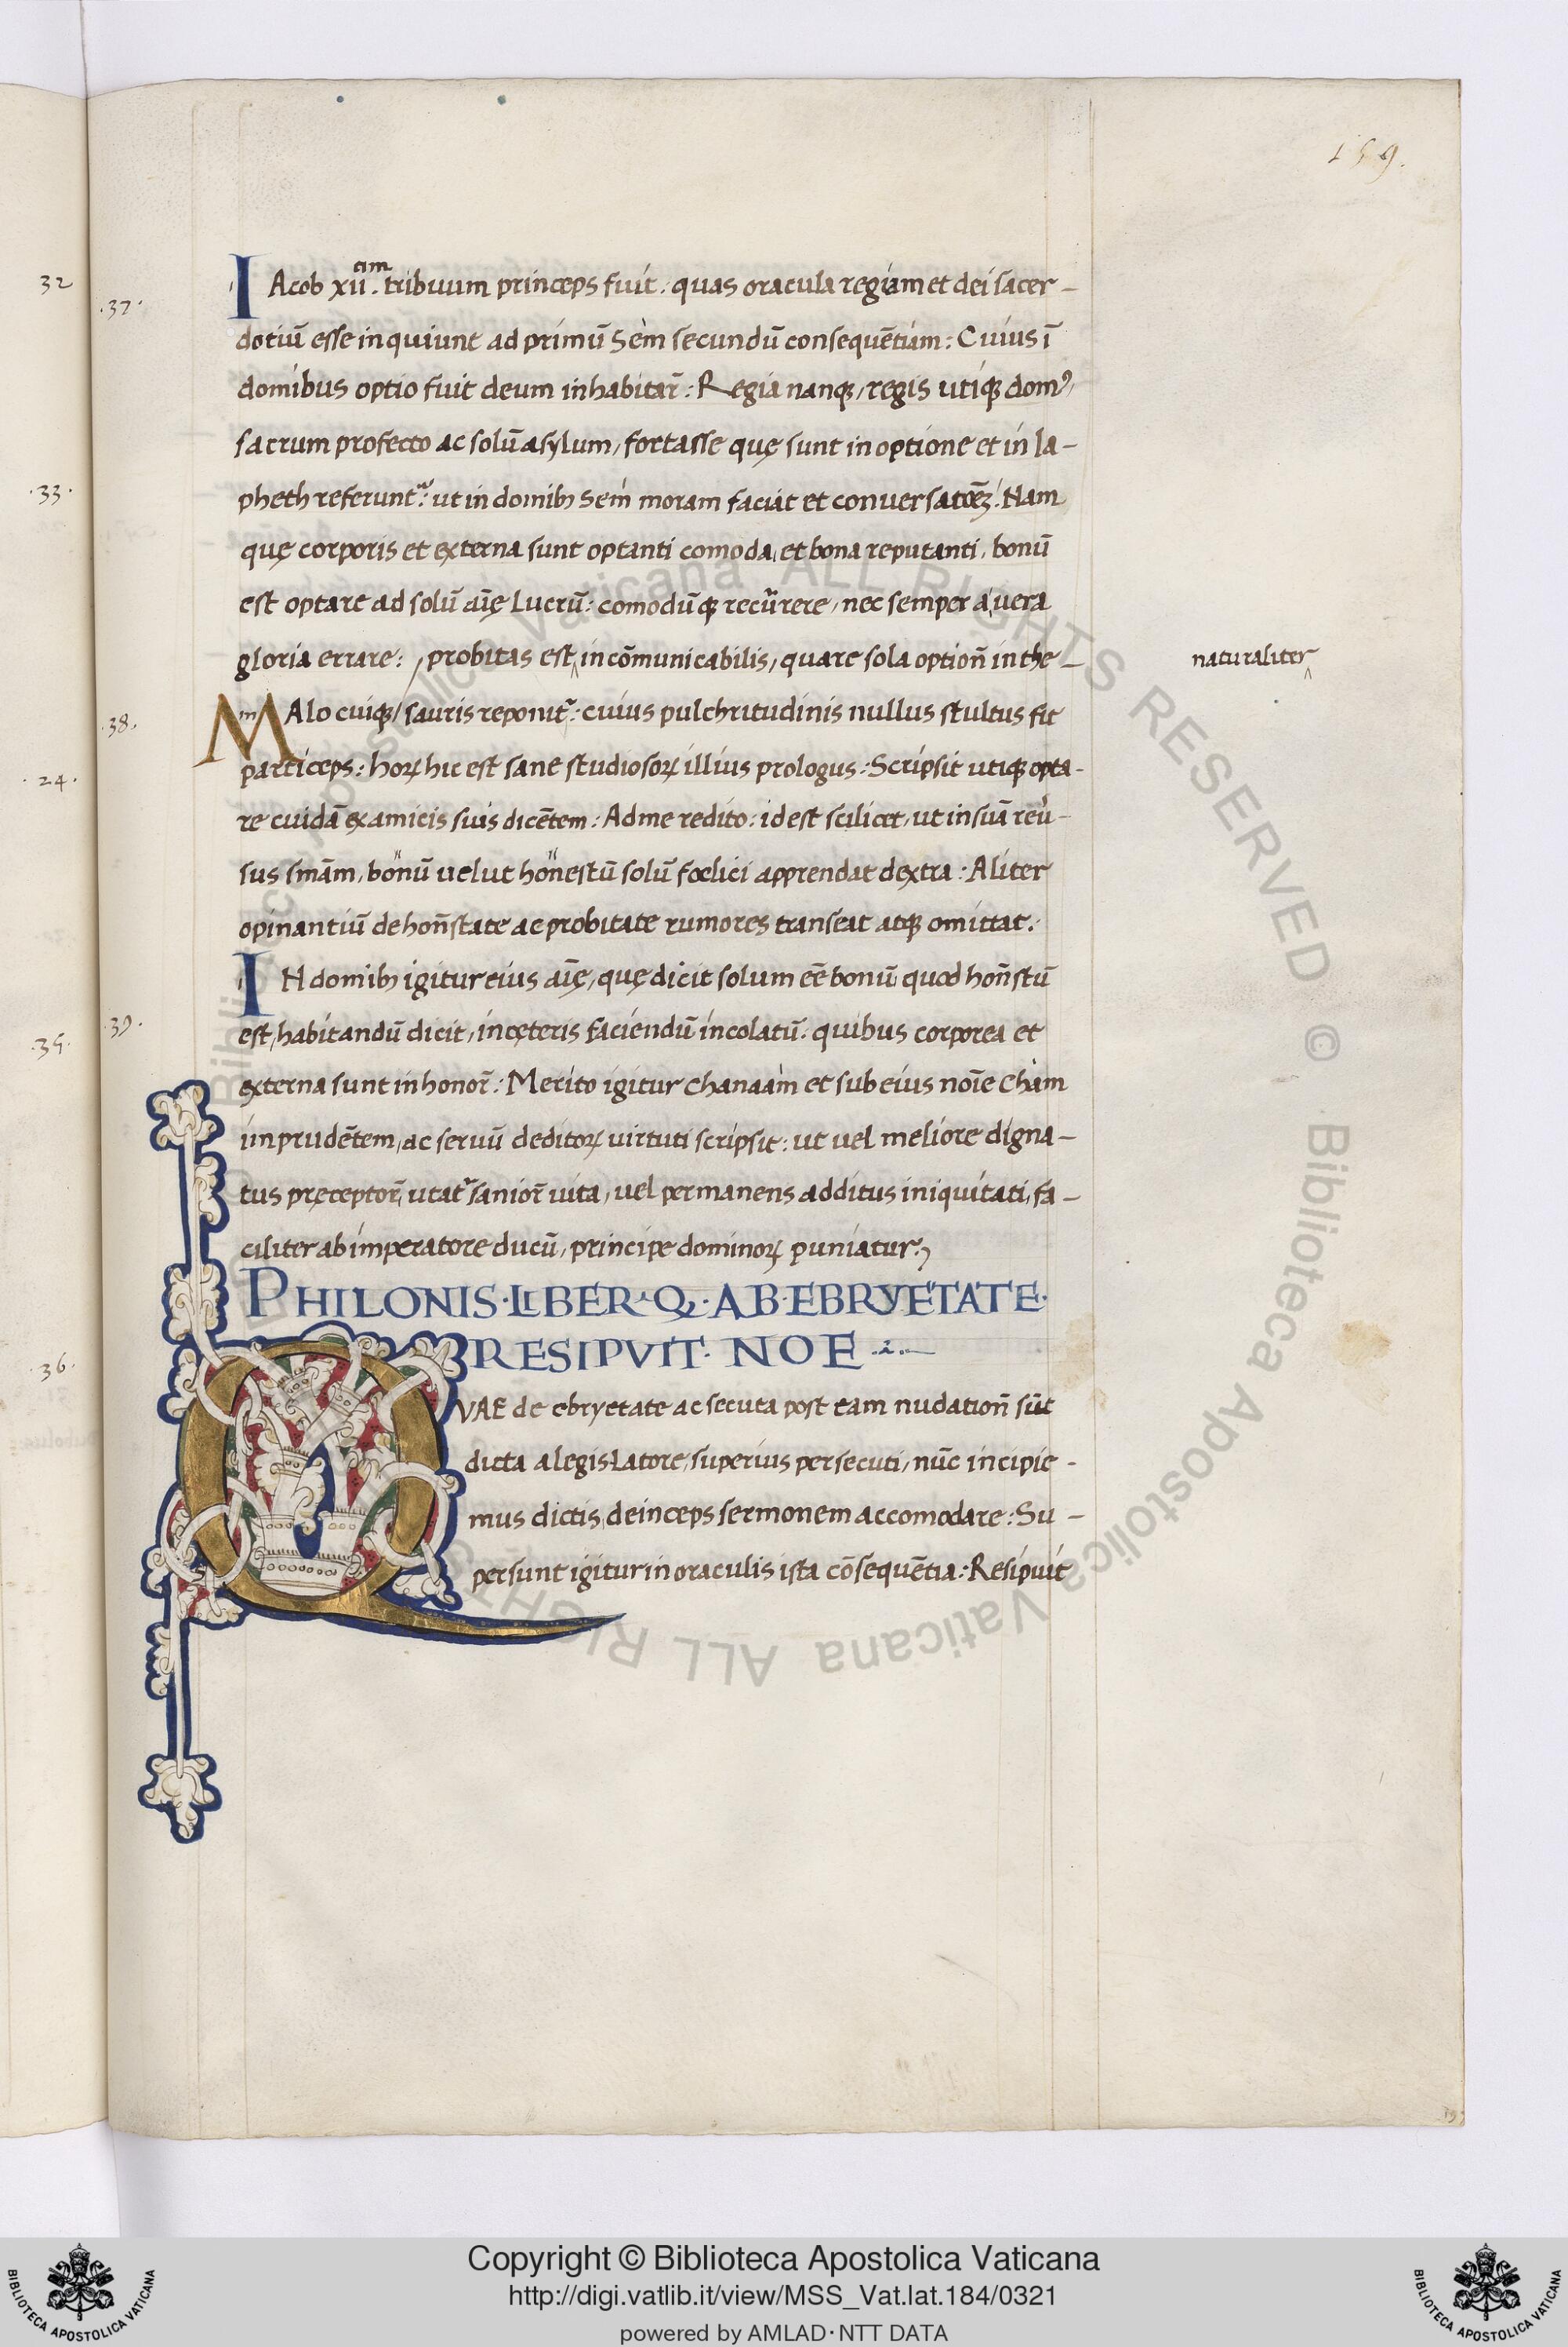 159.
32
·33·
·24·
·35·
·36·
·37·
·38·
·39·
IAcob xii.cim tribuum princeps fuit: quas oracula regiam et dei sacer-
dotiū esse inquiunt ad primū Sem secundū consequētiam: Cuius ī
domibus optio fuit deum inhabitar̃: Regia nanq; regis utiq; domꝰ,
sacrum profecto ac solū asylum, fortasse quę sunt in optione et in Ia-
pheth referunt͛: ut in domibȝ Sem moram faciat et conuersatōeȝ: Nam
quę corporis et externa sunt optanti comoda, et bona reputanti, bonū
est optare ad solū aīę Lucrū: comodūq; recurrere, nec semper a uera
gloria errare: probitas est incōmunicabilis, quare sola optioñ in the-
naturaliter
MAlo cuiq; sauris reponit͛: cuius pulchritudinis nullus stultus fit
particeps: horꝝ hic est sane studiosorꝝ illius prologus: Scripsit utiq; opta-
re cuidā ex amicis suis dicētem: Ad me redito: id est scilicet, ut in suā reu̓-
sus sm̄am, bonū uelut honestū solū fœlici apprendat dextra: Aliter
opinantiū de hoñstate ac probitate rumores transeat atq; omittat:
IN domibȝ igitur eius aīę, quę dicit solum eē bonū quod hoñstū
est, habitandū dicit, in cęteris faciendū incolatū. quibus corporea et
externa sunt in honor̃: Merito igitur Chanaam et sub eius noīe Cham
imprudētem, ac seruū deditorꝝ uirtuti scripsit: ut uel meliore digna-
tus pręceptor̃, utat͛ sanior̃ uita, uel permanens additus iniquitati, fa-
ciliter ab imperatore ducū, principe dominorꝝ puniatur:
PHILONIS·LIBER·Q·AB·EBRYETATE·
RESIPVIT· NOE
QVAE de ebryetate ac secuta post eam nudatioñ sūt
dicta a legislatore, superius persecuti, nūc incipie-
mus dictis, deinceps sermonem accomodare: Su-
persunt igitur in oraculis ista cōsequētia: Resipuit
© Biblioteca Apostolica Vaticana ALL RIGHTS RESERVED © Biblioteca Apostolica Vaticana ALL RIGHTS
Copyright © Biblioteca Apostolica Vaticana
http://digi.vatlib.it/view/MSS_Vat.lat.184/0321
powered by AMLAD·NTT DATA
BIBLIOTECA APOSTOLICA VATICANA
BIBLIOTECA APOSTOLICA VATICANA